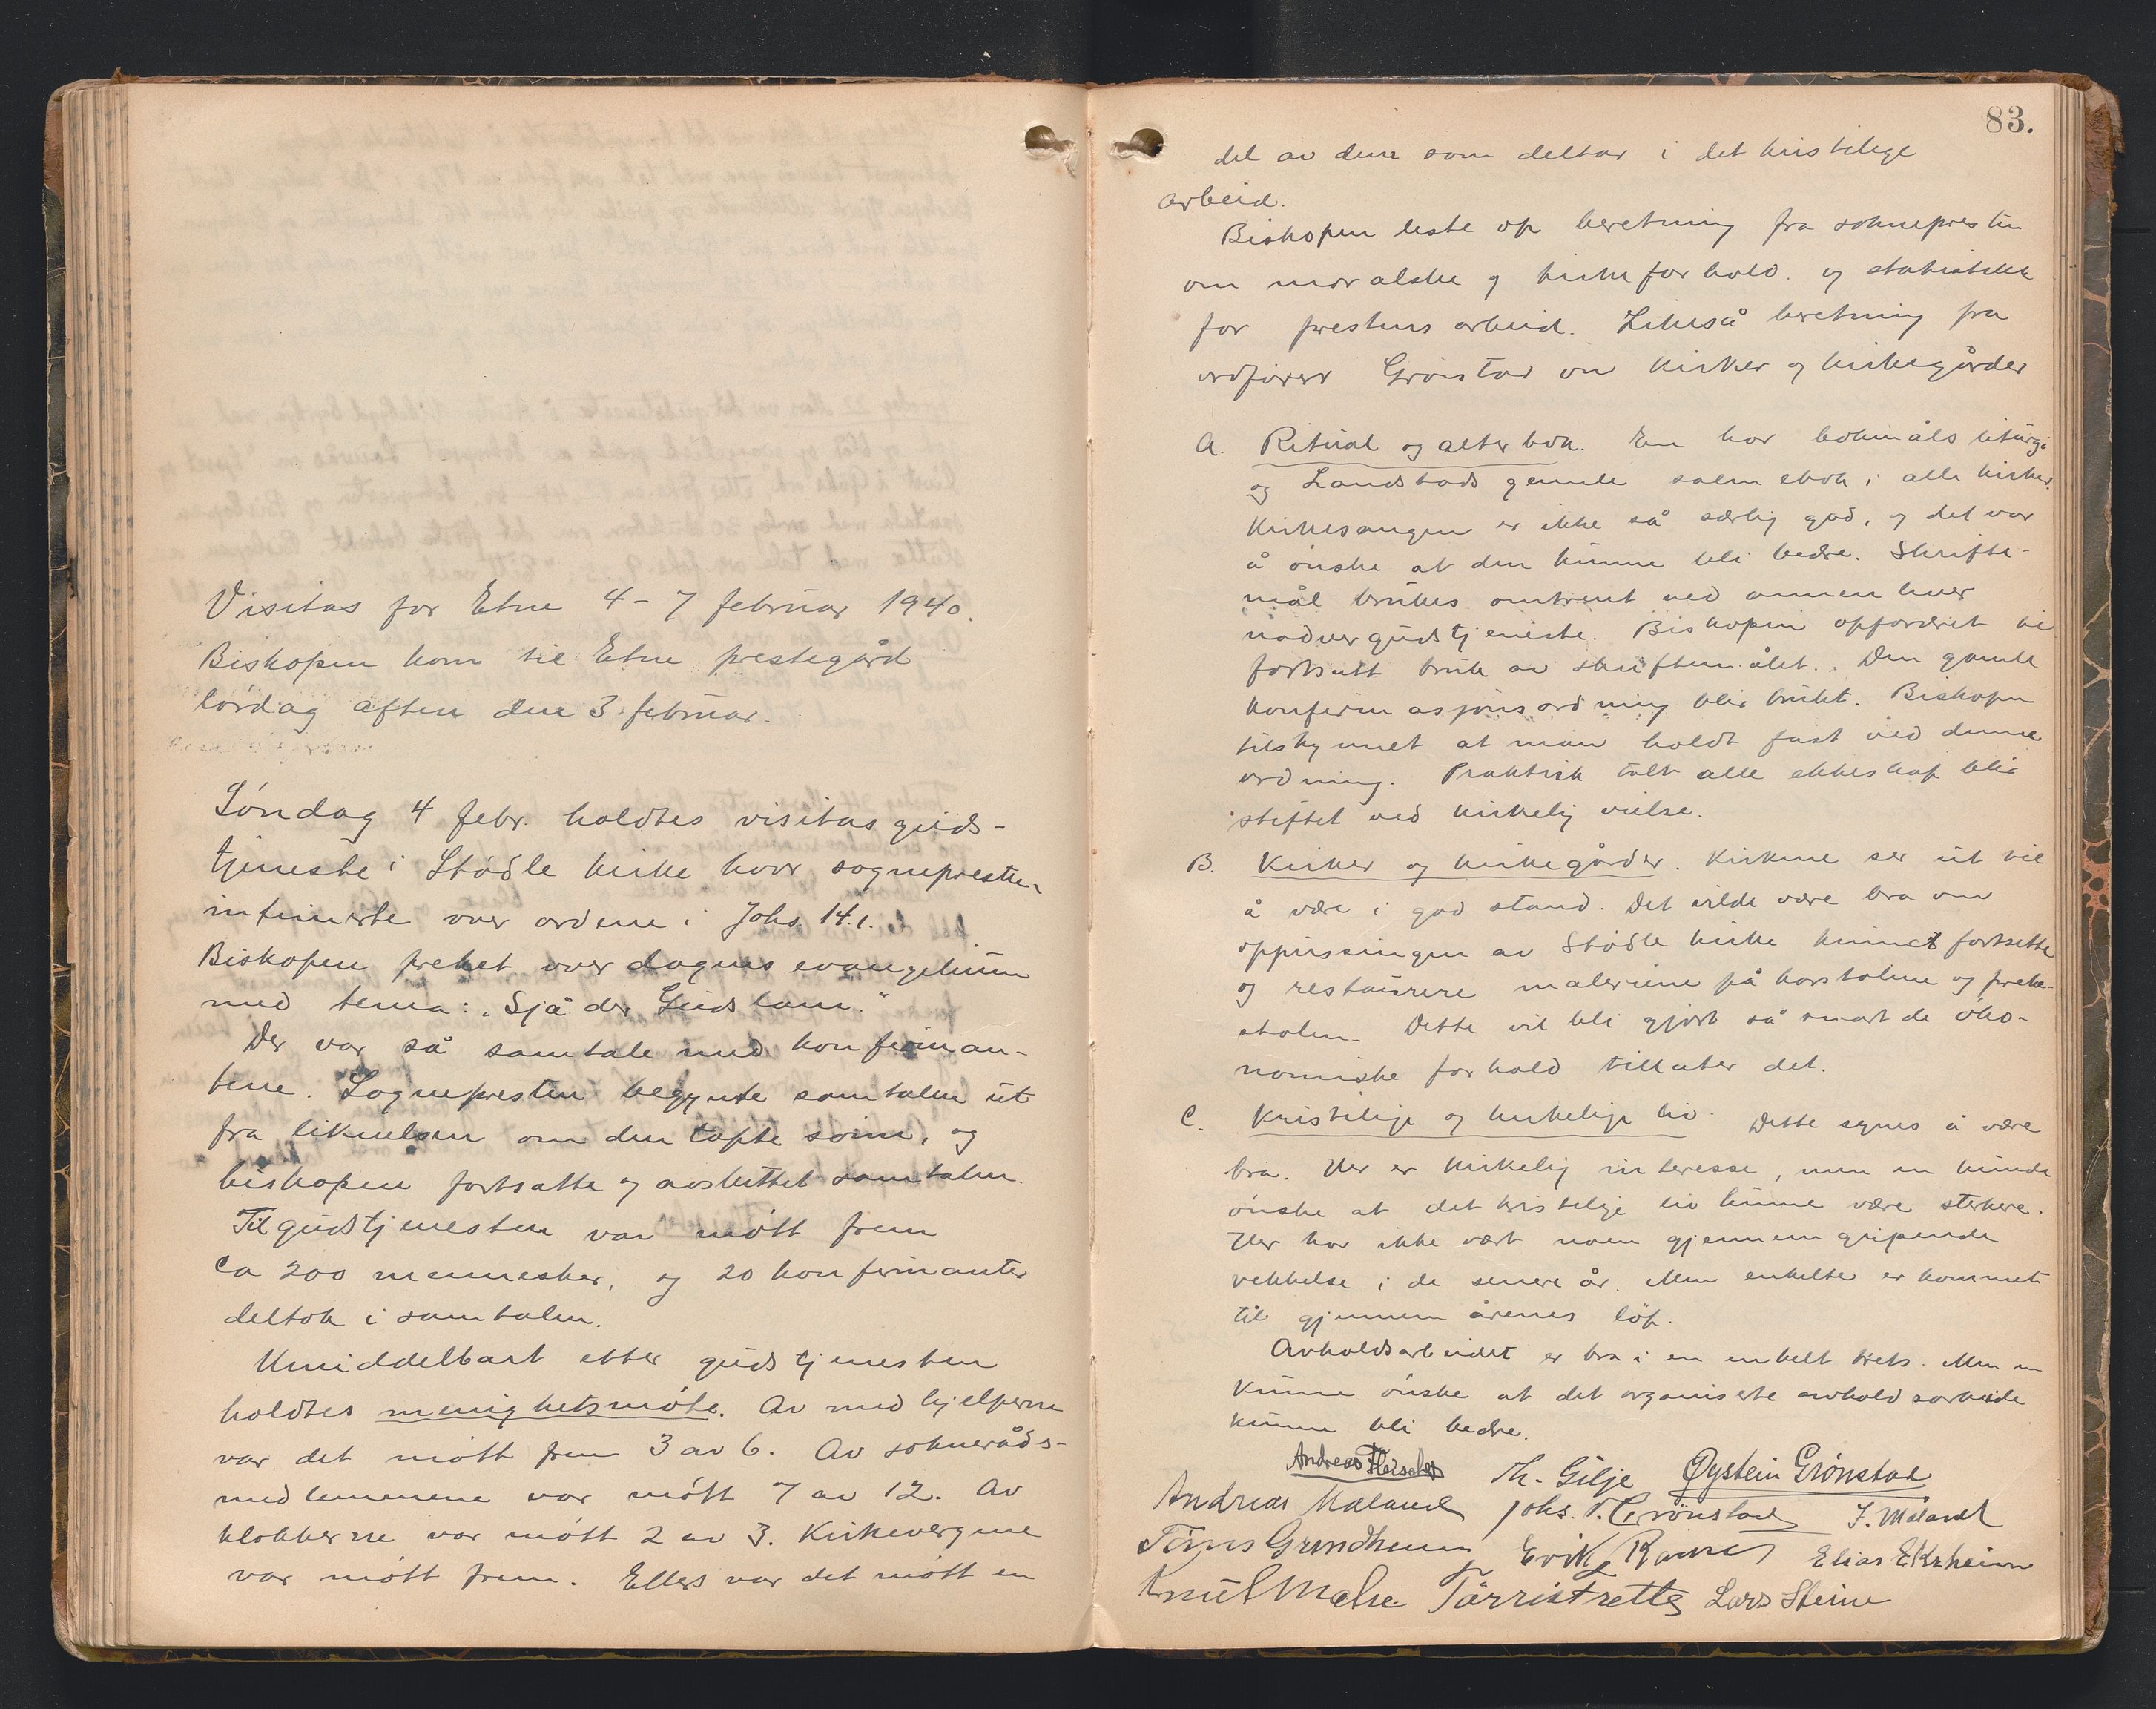 Visitas for Etne 4-7 februar 1940.
Biskopen kom til Etne prestegård
lørdag aften den 3 februar.
Søndag 4 febr. holdtes visitasguds-
tjeneste i Stødle kirke hvor sognepresten
intimerte over ordene i Johs. 14.1.
Biskopen preket over dagens evangelium
med tema: "Sjå der Guds lam."
Der var så samtale med konfirman-
tene. Sognepresten begynte samtalen ut
fra liknelsen om den tapte sønn, og
biskopen fortsatte og avsluttet samtalen.
Til gudstjenesten var møtt frem
ca 200 mennesker, og 20 konfirmanter
deltok i samtalen.
Umiddelbart etter gudstjenesten
holdtes menighetsmøte. Av medhjelperne
var det møtt frem 3 av 6. Av sokneråds-
medlemmene var møtt 7 av 12. Av
klokkerne var møtt 2 av 3. Kirkevergene
var møtt frem. Ellers var det møtt en
83.
del av dem som deltar i det kristelige
arbeid.
Biskopen leste op beretning fra soknepresten
om moralske og kirkeforhold. og statistikk
for prestens arbeid. Likeså beretning fra
ordfører Grønstad om kirker og kirkegårder
A. Ritual og alterbok. En har bokmåls liturgi
og Landstads gamle salmebok i alle kirker.
Kirkesangen er ikke så særlig god, og det var
å ønske at den kunne bli bedre. Skrifte-
mål brukes omtrent ved annen hver
nadvergudstjeneste. Biskopen opfordret til
fortsatt bruk av skriftemålet. Den gamle
konfirmasjonsordning blir brukt. Biskopen
tilskyndet at man holdt fast ved denne
ordning. Praktisk talt alle ekteskap blir
stiftet ved kirkelig vielse.
B. Kirker og kirkegårder. Kirkene ser ut til
å være i god stand. Det vilde være bra om
oppussingen av Stødle kirke kunne fortsette
og restaurere maleriene på korstolene og preke-
stolen. Dette vil bli gjort så snart de øko-
nomiske forhold tillater det.
C. Kristelige og kirkelige liv. Dette synes å være
bra. Her er kirkelig interesse, men en kunde
ønske at det kristelige liv kunne være sterkere.
Her har ikke vært noen gjennemgripende
vekkelse i de senere år. Men enkelte er kommet
til gjennem årenes løp.
Avholdsarbeidet er bra i en enkelt krets. Men en
kunne ønske at det organiserte avholdsarbeide
kunne bli bedre.
Andreas Fleischer Th. Gilje Øystein Grønstad
Andreas Mæland Johs. T. Grønstad J. Mæland
Tørris Grindheim Erik Ramse Elias Ekrheim
Knut Mæhe Tørris Lars Steine